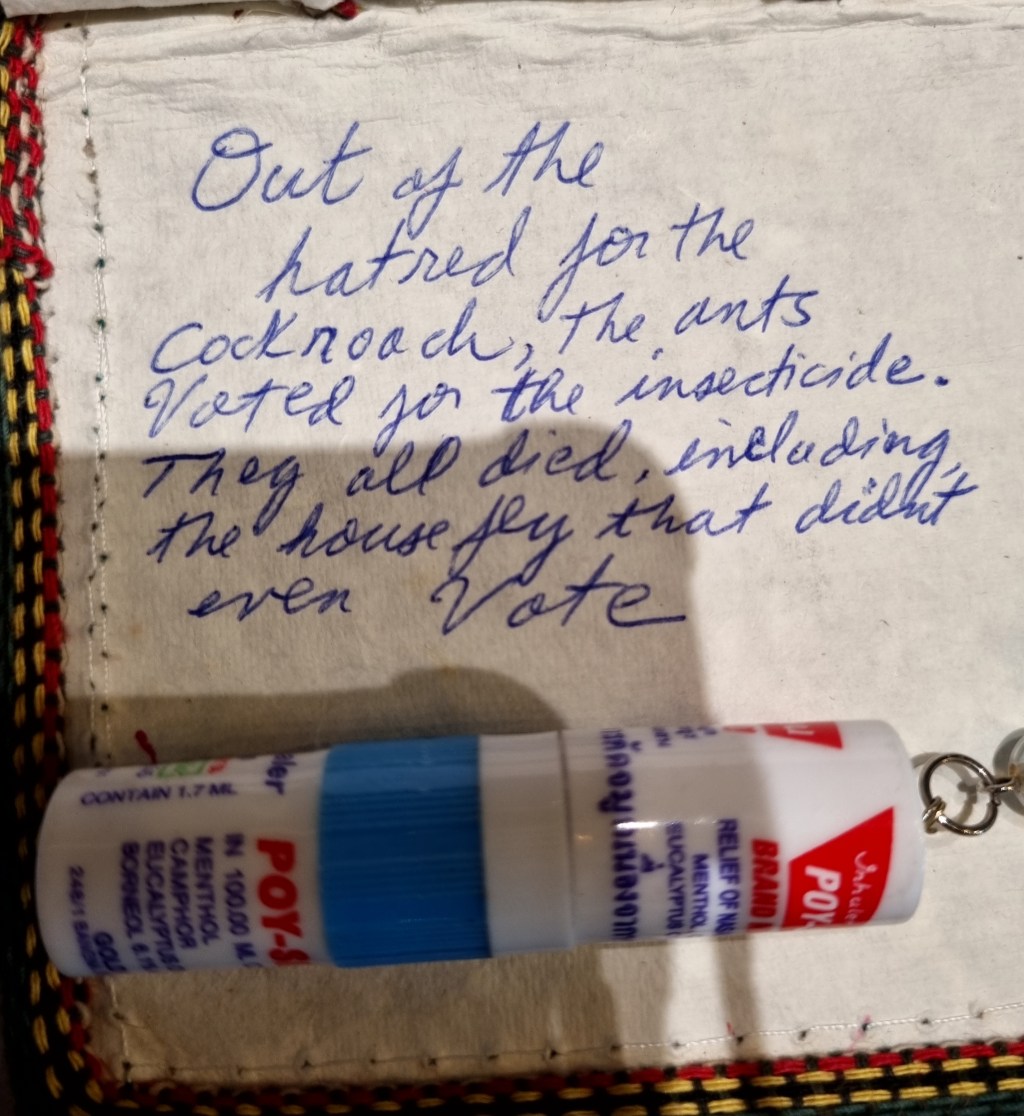 Out of the
hatred for the
Cockroach, the ants
Voted for the insecticide.
They all died, including,
the housefly that didn't
even Vote
CONTAIN 1.7 ML
POY-S
IN 100.00 ML
MENTHOL
CAMPHOR
EUCALYPTUS
BORNEOL
RELIEF OF
MENTHOL
EUCALYPTUS
BRAND
POY